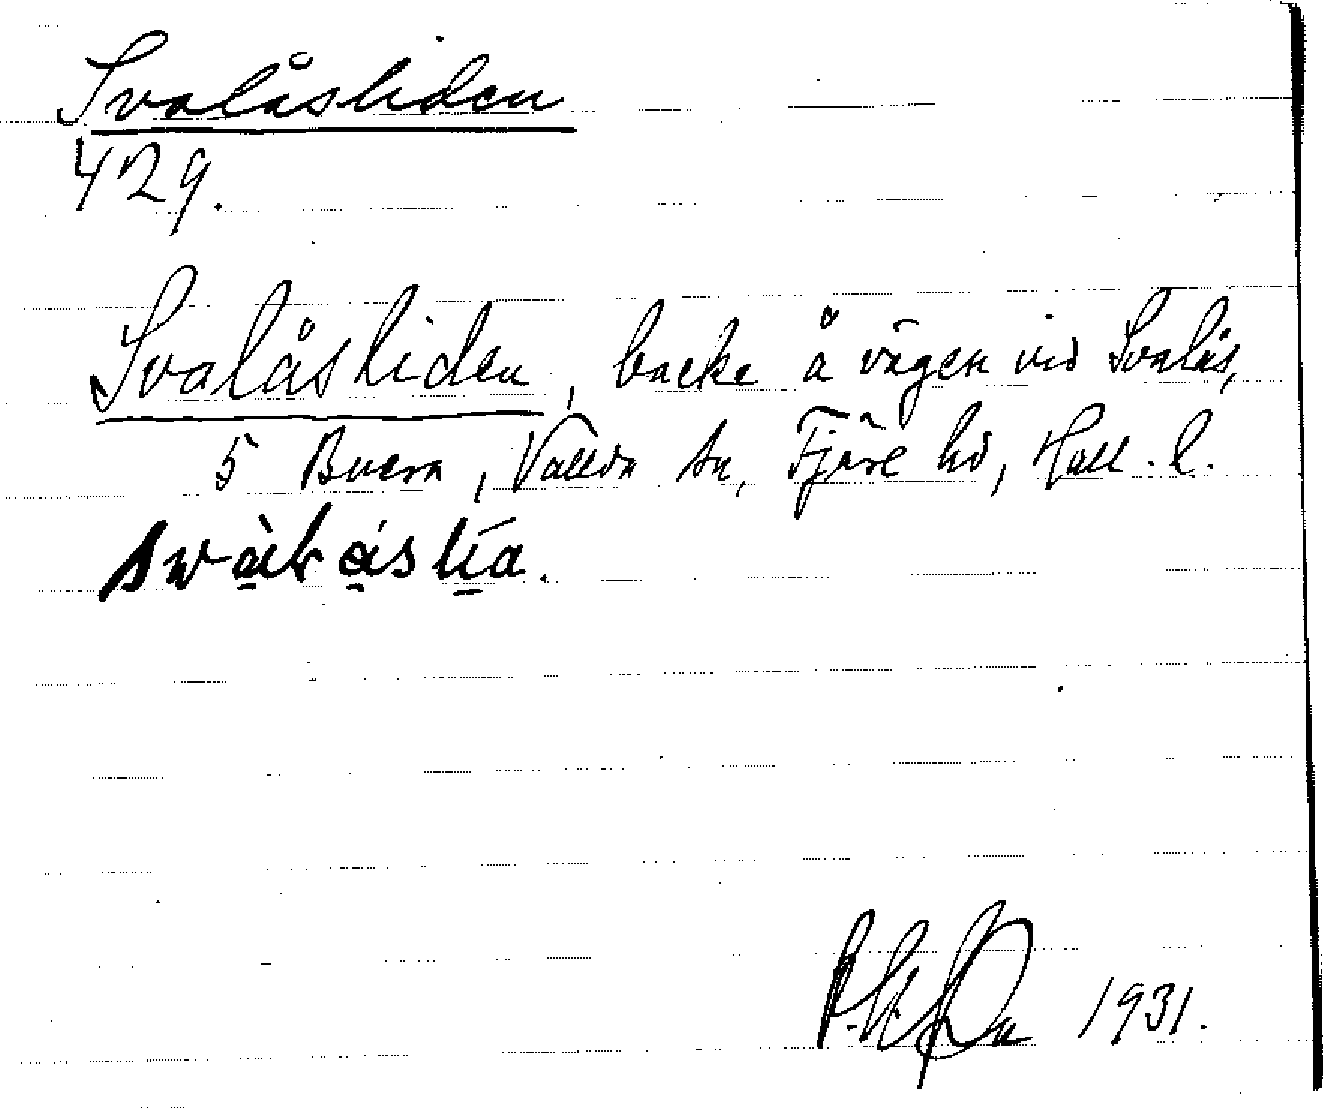 Svalåsliden
429.
Svalåsliden, backe å vägen vid Svalås,
5 Buera, Vallda sn, Fjäre hd, Hall. l.
1931.